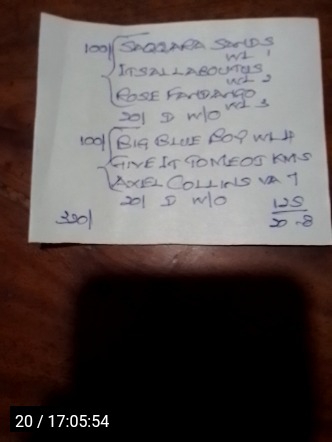 100/ SAQQARA SANDS
WL 1
ITSALLABOUTUS
WL 2
ROSE FANDANGO
WL 3
20/ D W/O
100/ BIG BLUE BOY WL 4
GIVE IT TO ME OJ KMS
AXEL COLLINS VA 7
20/ D W/O
330/
125
20-8
20 / 17:05:54